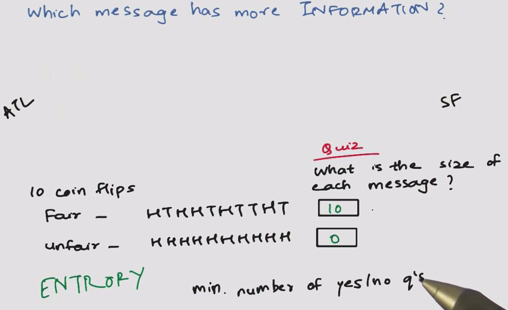 Which message has more INFORMATION?
ATL
SF
Quiz
What is the size of
each message?
10 coin flips
Fair - HTHHTHTTHT 10
unfair - HHHHHHHHHH 0
ENTROPY min. number of yes/no q's